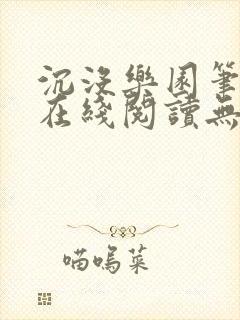 沉沒樂園筆
在綫閱讀無
喵嗚菜